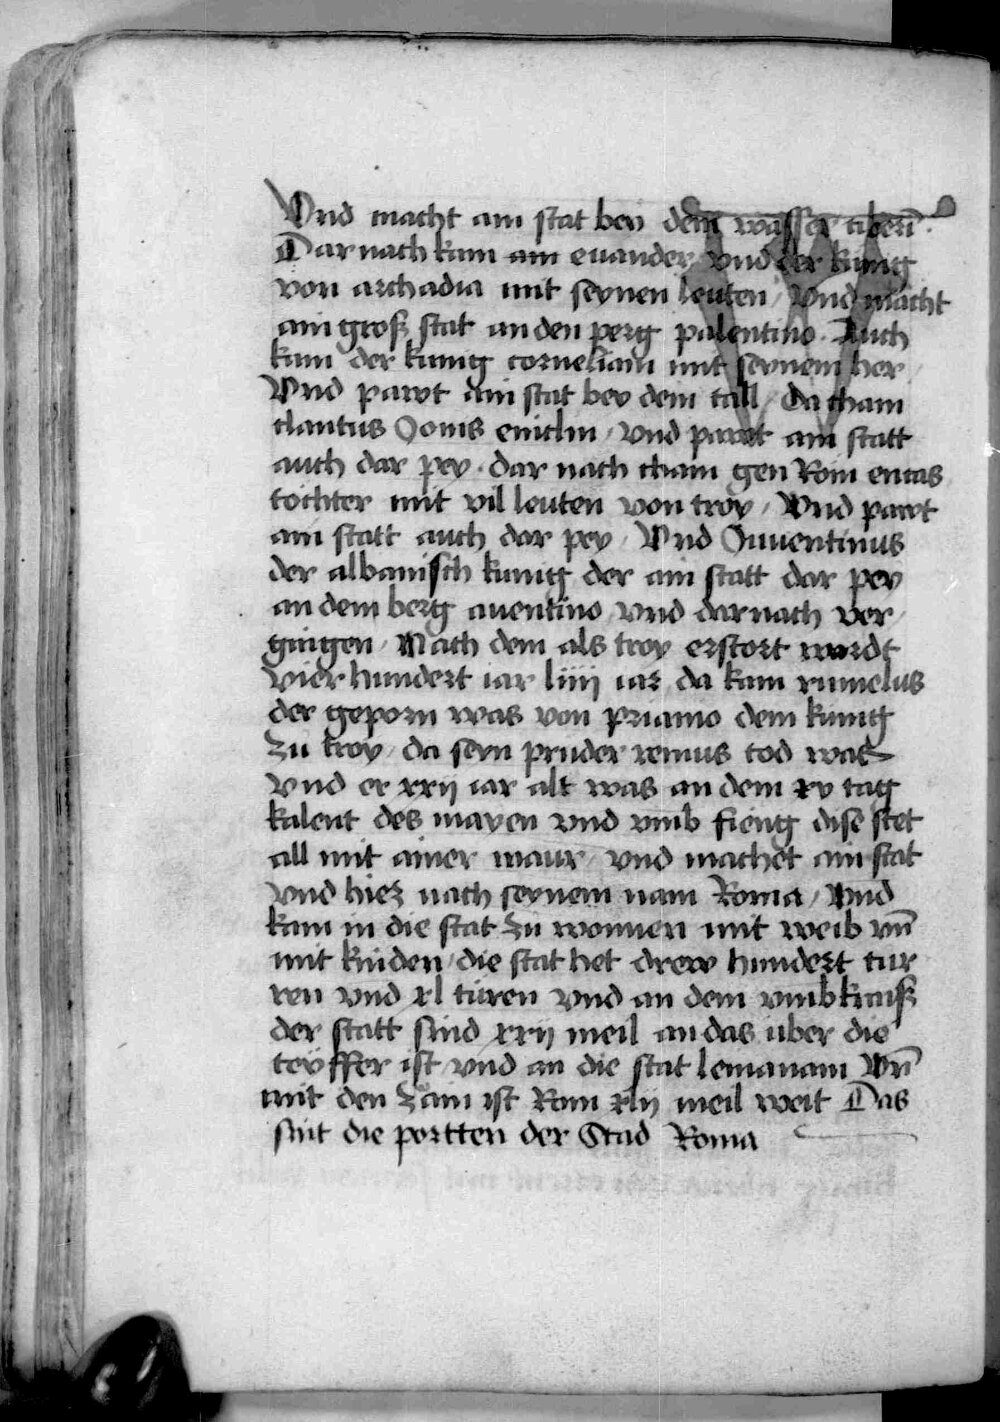 Vnd macht ain stat bey dem wasser tiberī ·
Dar nach kam ain euander vnd der kunig
von archadia mit seynen leuten / Vnd macht
ain groß stat an den perg palentino · Auch
kam der kunig corneliam mit seynem her /
Vnd pawt ain stat bey dem tall / Da cham
clantus Jonis eniclin / vnd pawt ain statt
auch dar pey · dar nach cham gen Rom eneas
tochter mit vil leuten von troy / Vnd pawt
ain statt auch dar pey / Vnd Juuentinus
der albanisch kunig der ain statt dar pey
an dem berg auentino / vnd dar nach ver /
gingen / Nach dem als troy erstort wardt
vier hundert iar liiij iar da kam rumelus
der geporn was von priamo dem kunig
zu troy / da seyn pruder remus tod was
vnd er xxij iar alt was an dem xv tag
kalent des mayen vnd vmb fieng dise stet
all mit ainer maur / vnd machet ain stat
vnd hiez nach seynem nam Roma / Vnd
kam in die stat zu wonnen mit weib vn̄
mit kinden / die stat het drew hundert tur
ren vnd xl türen vnd an dem vmbkraiß
der statt sind xxij meil an das uber die
teyffer ist / vnd an die stat lemanam Vn̄
mit den zäin ist Rom xlij meil weit Das
sint die portten der Stad Roma